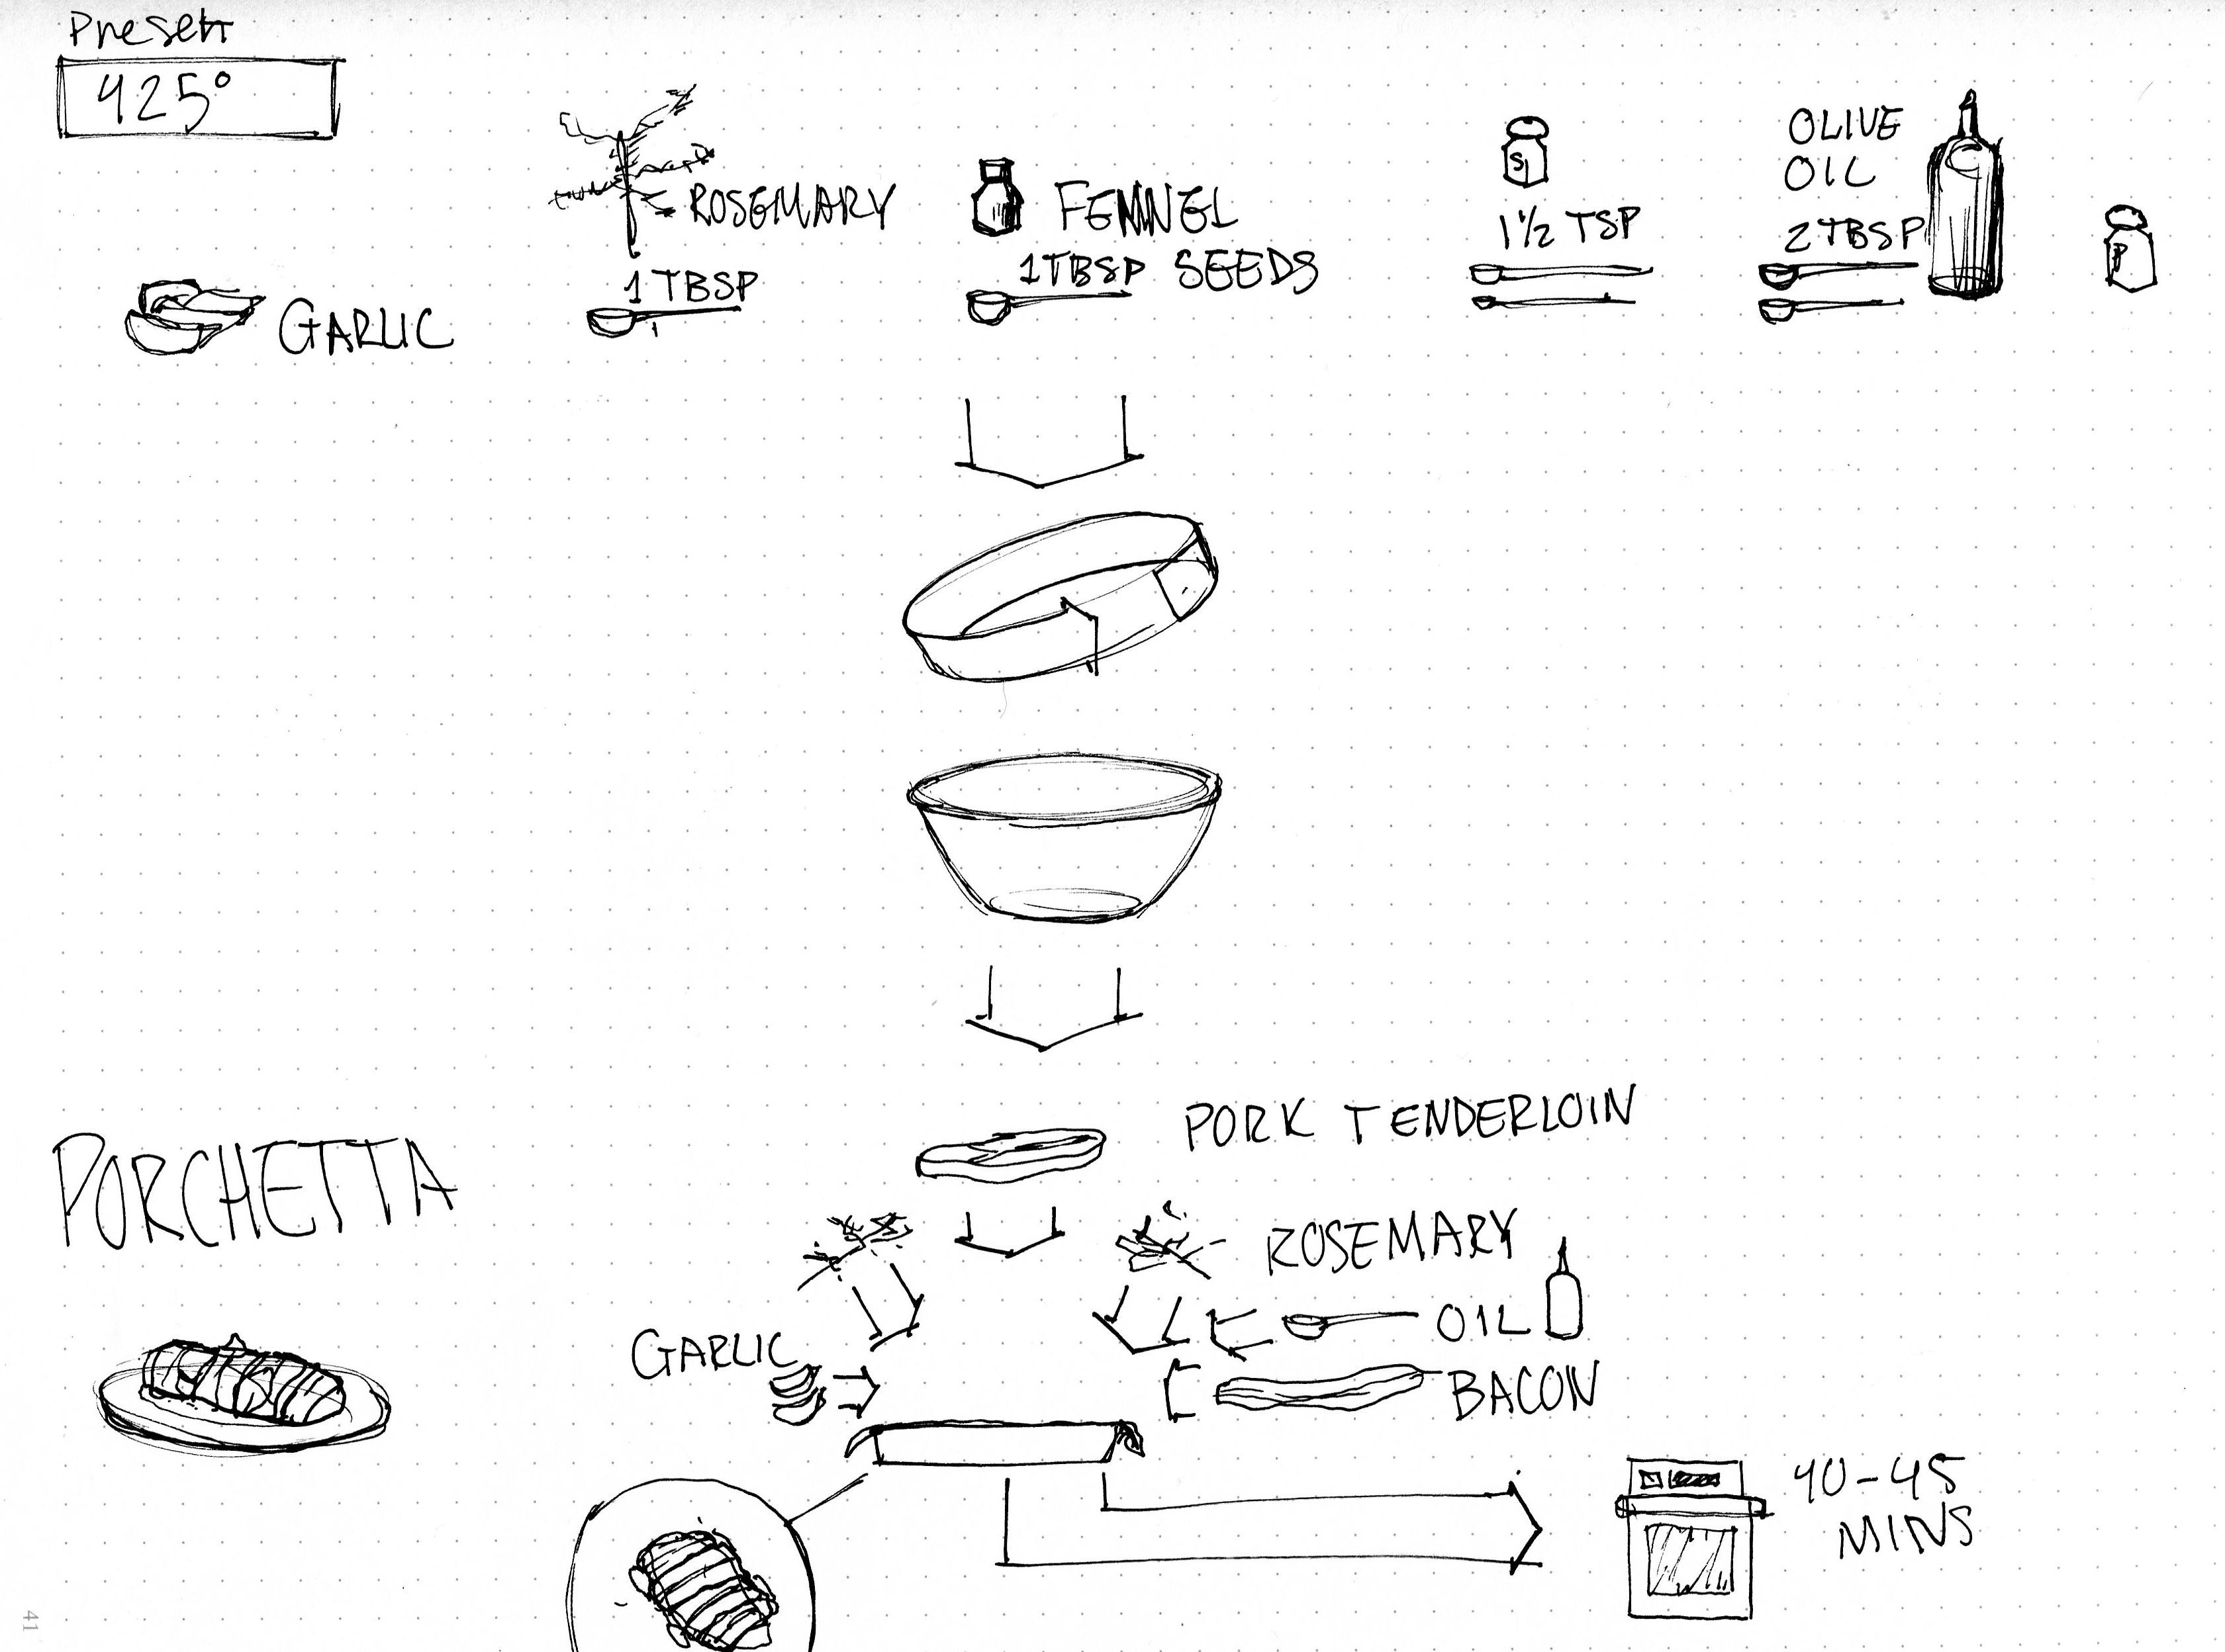 Preset
425°
GARLIC
ROSEMARY
1 TBSP
FENNEL
1 TBSP SEEDS
S
1 1/2 TSP
OLIVE
OIL
2 TBSP
P
PORK TENDERLOIN
PORCHETTA
ROSEMARY
OIL
GARLIC
BACON
40-45
MINS
41